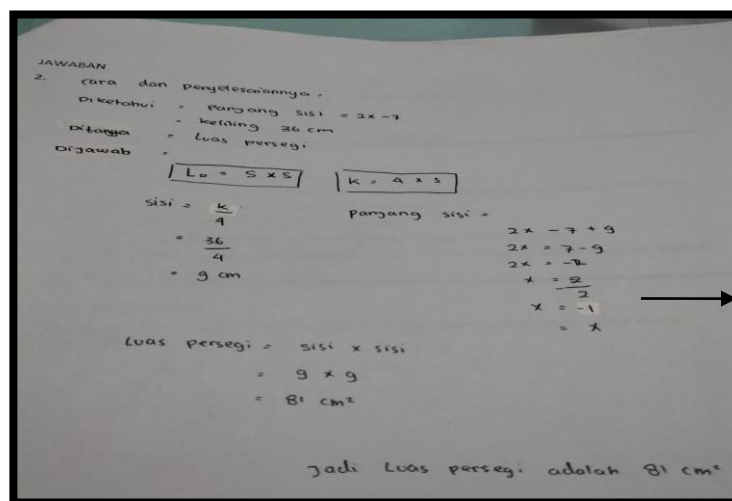 JAWABAN
2. cara dan penyelesaiannya :
Diketahui = Panjang sisi = 2x - 7
= keliling 36 cm
Ditanya = Luas persegi
Dijawab =
L▫ = S x S
K = 4 x S
sisi = K/4
= 36/4
= 9 cm
Panjang sisi =
2x - 7 + 9
2x = 7 - 9
2x = -2
x = -2/2
x = -1
= x
Luas persegi = sisi x sisi
= 9 x 9
= 81 cm²
Jadi Luas persegi adalah 81 cm²